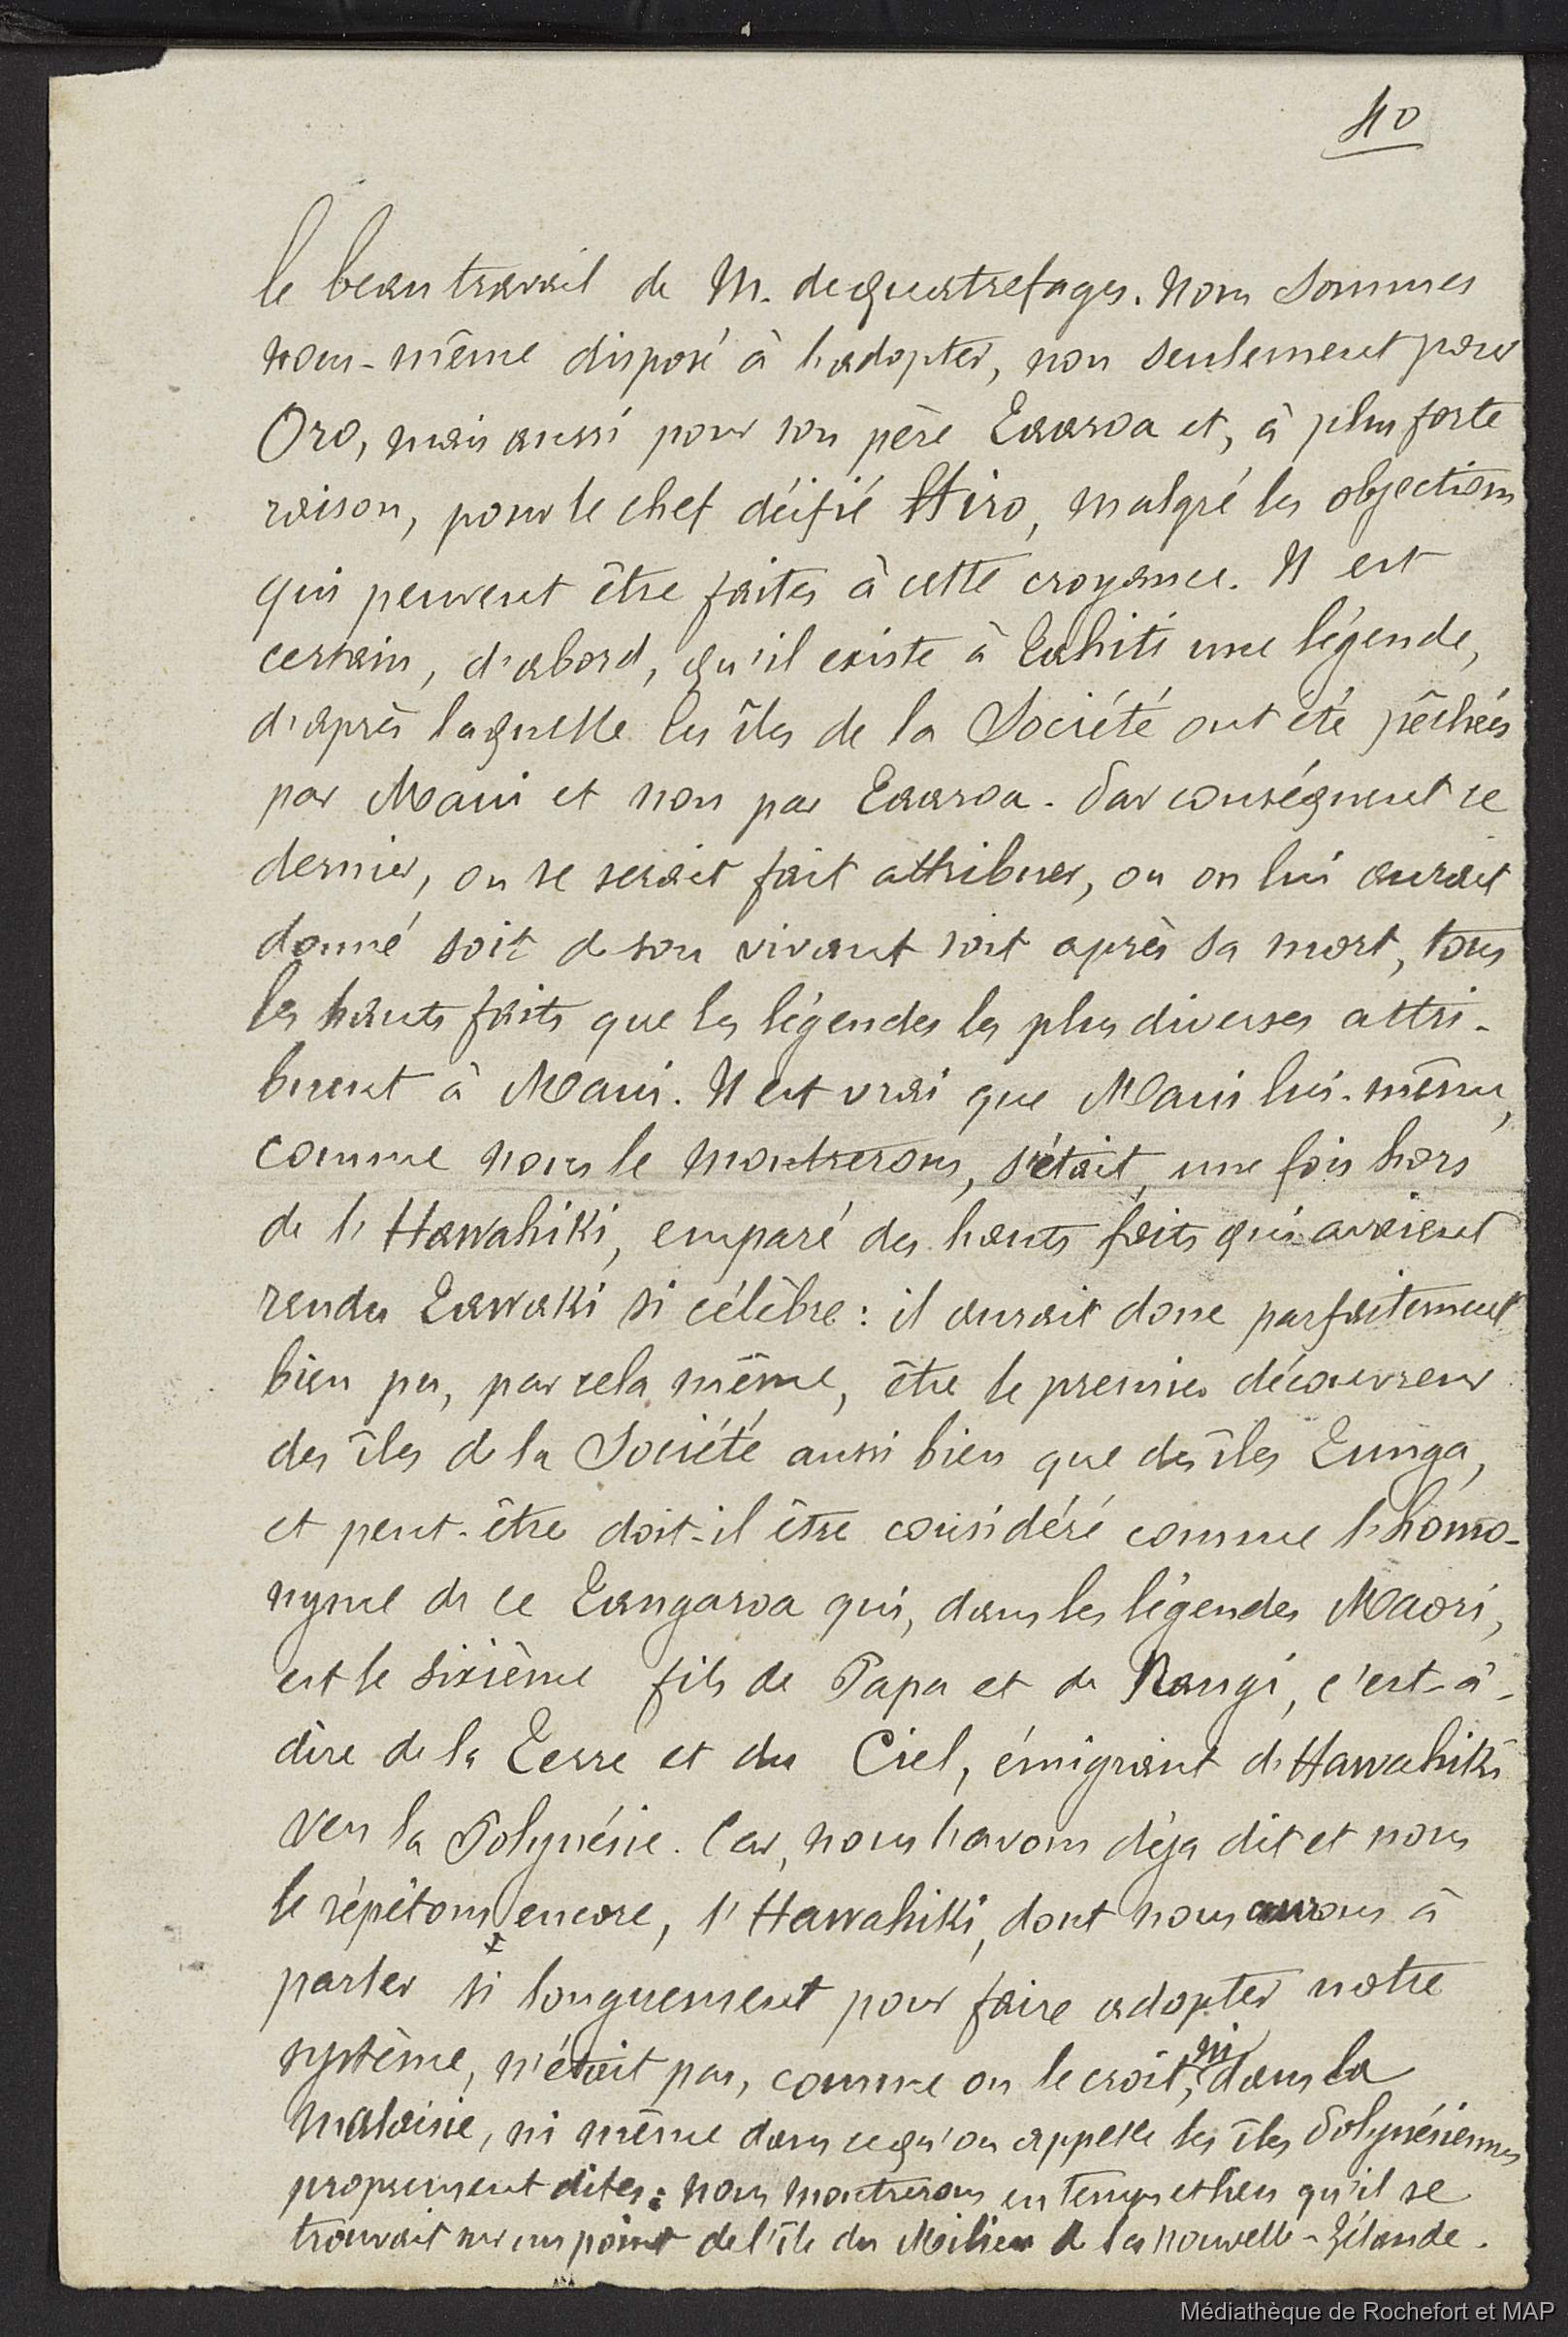 40
le beau travail de M. de Quatrefages. Nous sommes
nous-même disposé à l'adopter, non seulement pour
Oro, mais aussi pour son père Taaroa et, à plus forte
raison, pour le chef déifié Hiro, malgré les objections
qui peuvent être faites à cette croyance. Il est
certain, d'abord, qu'il existe à Tahiti une légende,
d'après laquelle les îles de la Société ont été pêchées
par Maui et non par Taaroa. Par conséquent ce
dernier, ou se serait fait attribuer, ou on lui aurait
donné soit de son vivant soit après sa mort, tous
les hauts faits que les légendes les plus diverses attri-
buent à Maui. Il est vrai que Maui lui-même,
comme nous le montrerons, s'était, une fois hors
de l'Hawahiki, emparé des hauts faits qui avaient
rendu Tawaki si célèbre : il aurait donc parfaitement
bien pu, par cela même, être le premier découvreur
des îles de la Société aussi bien que des îles Tunga,
et peut-être doit-il être considéré comme l'homo-
nyme de ce Tangaroa qui, dans les légendes Maori,
est le sixième fils de Papa et de Rangi, c'est-à-
dire de la Terre et du Ciel, émigrant d'Hawahiki
vers la Polynésie. Car, nous l'avons déja dit et nous
le répétons encore, l'Hawahiki, dont nous aurons à
parler si longuement pour faire adopter notre
système, n'était pas, comme on le croit, ni dans la
Malaisie, ni même dans ce qu'on appelle les îles Polynésiennes
proprement dites : nous montrerons en temps et lieu qu'il se
trouvait sur un point de l'île du Milieu de la Nouvelle-Zélande.
Médiathèque de Rochefort et MAP